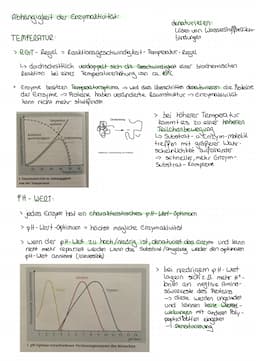 Abhängigkeit der Enzymaktivität:
denaturieren:
Lösen von Wasserstoffbrücken-
bindungen
TEMPERATUR:
> RGT - Regel = Reaktionsgeschwindigkeit-Temperatur-Regel
↳ durchschnittlich verdoppelt sich die Geschwindigkeit einer biochemischen
Reaktion bei einer Temperaturerhöhung von ca. 10°C
> Enzyme besitzen Temperaturoptimum → wird das überschritten denaturieren die Proteine
der Enzyme → Proteine haben veränderte Raumstruktur → Enzymaktivität
kann nicht mehr stattfinden
> bei höherer Temperatur
kommt es zu einer höheren
Teilchenbewegung
↳ Substrat- und Enzym-moleküle
treffen mit größerer Wahr-
scheinlichkeit aufeinander
→ schnelle, mehr Enzym-
Substrat-Komplexe
pH - WERT:
> jedes Enzym hat ein charakteristisches pH-Wert-Optimum
> pH-Wert-Optimum → höchst mögliche Enzymaktivität
> wenn der pH-Wert zu hoch/niedrig ist, denaturiert das Enzym und kann
nicht mehr repariert werden wenn das Substrat/Umgebung wieder den optimalen
pH-Wert annimmt (irreversibel)
> bei niedrigem pH-Wert
lagern sich z.B. mehr H⁺-
an negative Amino-
säurereste des Proteins
→ diese werden ungeladen
und können keine
mit anderen Poly-
peptidketten eingehen
→ Denaturierung